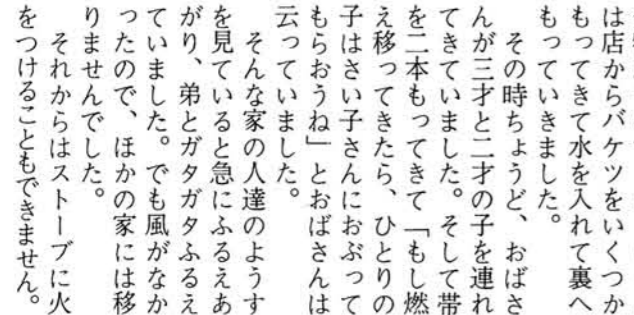 は店からバケツをいくつか
もってきて水を入れて裏へ
もっていきました。
その時ちょうど、おばさ
んが三才と二才の子を連れ
てきていました。そして帯
を二本もってきて「もし燃
え移ってきたら、ひとりの
子はさい子さんにおぶって
もらおうね」とおばさんは
云っていました。
そんな家の人達のようす
を見ていると急にふるえあ
がり、弟とガタガタふるえ
ていました。でも風がなか
ったので、ほかの家には移
りませんでした。
それからはストーブに火
をつけることもできません。